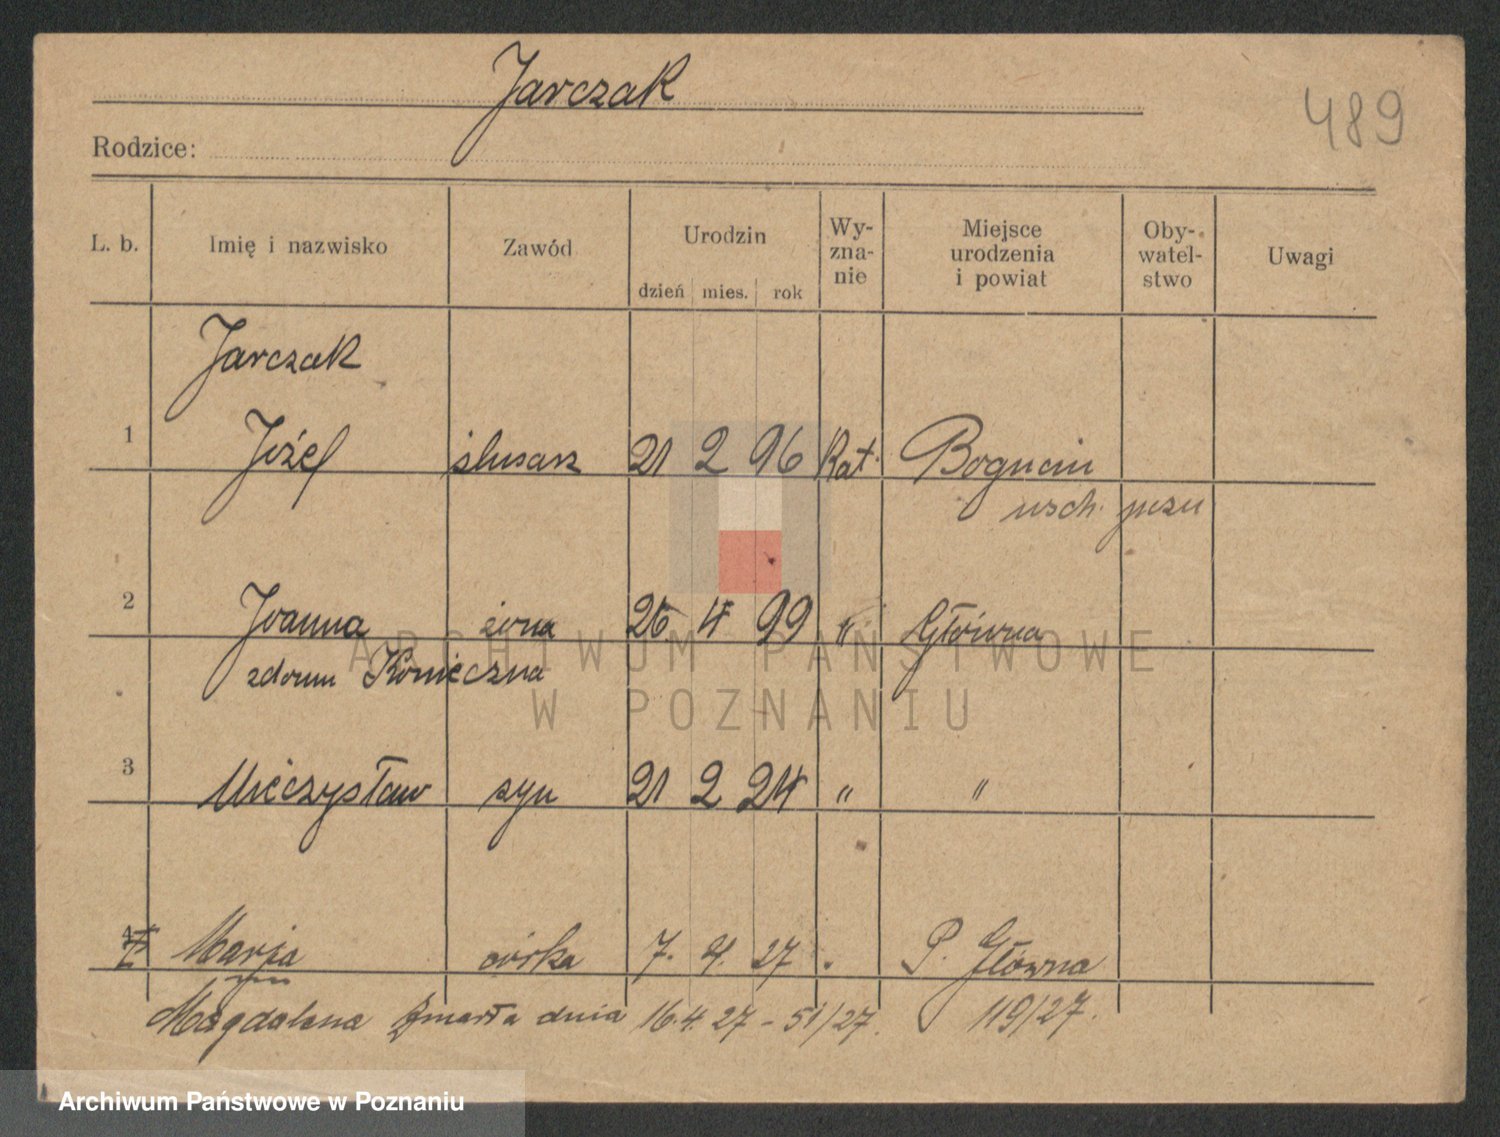 Jarczak
489
Rodzice:
L. b. Imię i nazwisko Zawód Urodzin dzień mies. rok Wy-zna-nie Miejsce urodzenia i powiat Oby-watel-stwo Uwagi
Jarczak
1 Józef ślusarz 21 2 96 Kat. Bogucin
wsch.
2 Joanna żona 26 4 99 " Główna
zdomu Konieczna
3 Mieczysław syn 21 2 24 " "
4 Marja córka 7. 4. 27 . P. Główna
Magdalena Zmarła dnia 16.4.27 - 51/27. 119/27.
ARCHIWUM PAŃSTWOWE
W POZNANIU
Archiwum Państwowe w Poznaniu